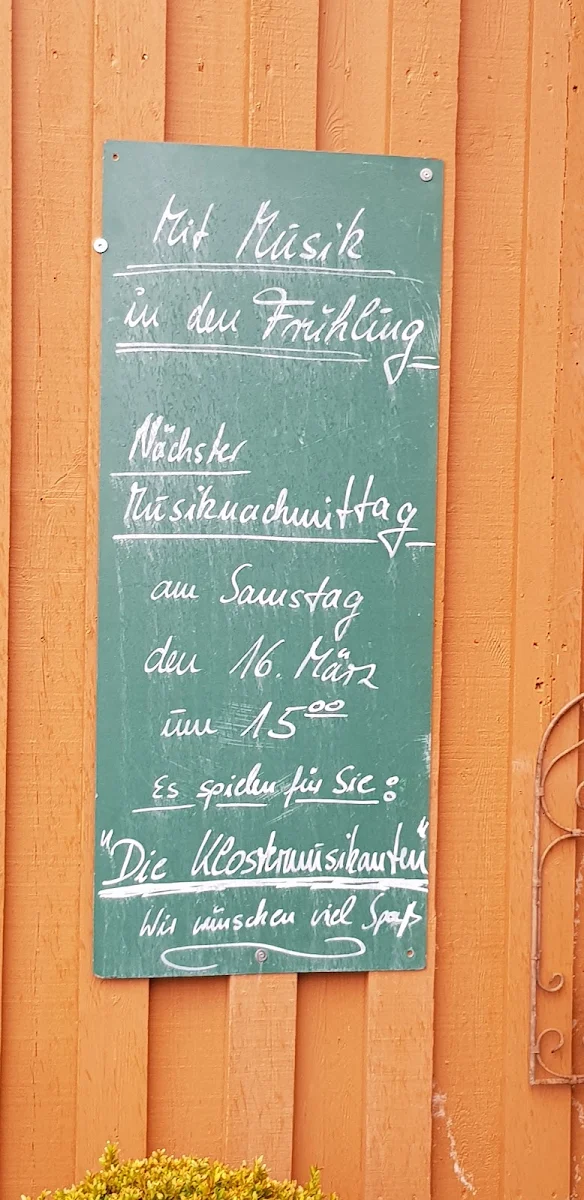 Mit Musik
in den Frühling
Nächster
Musiknachmittag
am Samstag
den 16. März
um 15⁰⁰
Es spielen für Sie:
"Die Klostermusikanten"
Wir wünschen viel Spaß